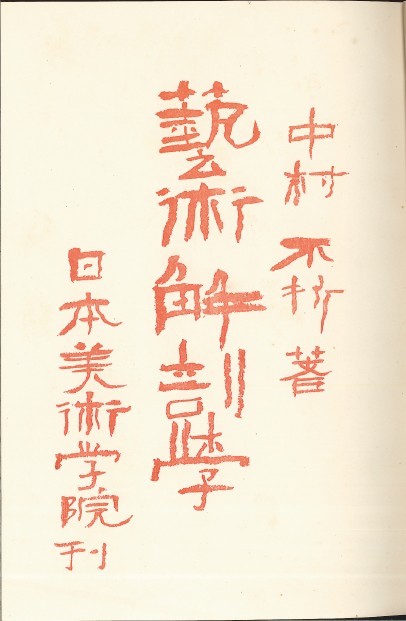 中村不折著
藝術解剖學
日本美術学院刊